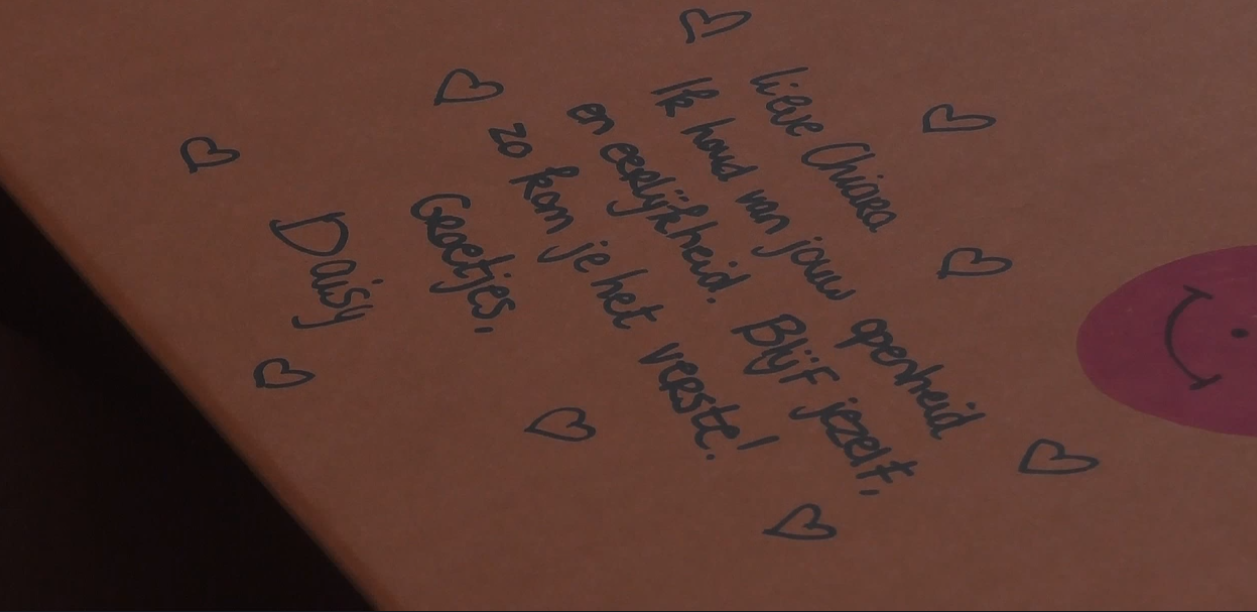 lieve Chiara
Ik houd van jouw openheid
en eerlijkheid. Blijf jezelf,
zo kom je het verste!
Groetjes,
Daisy